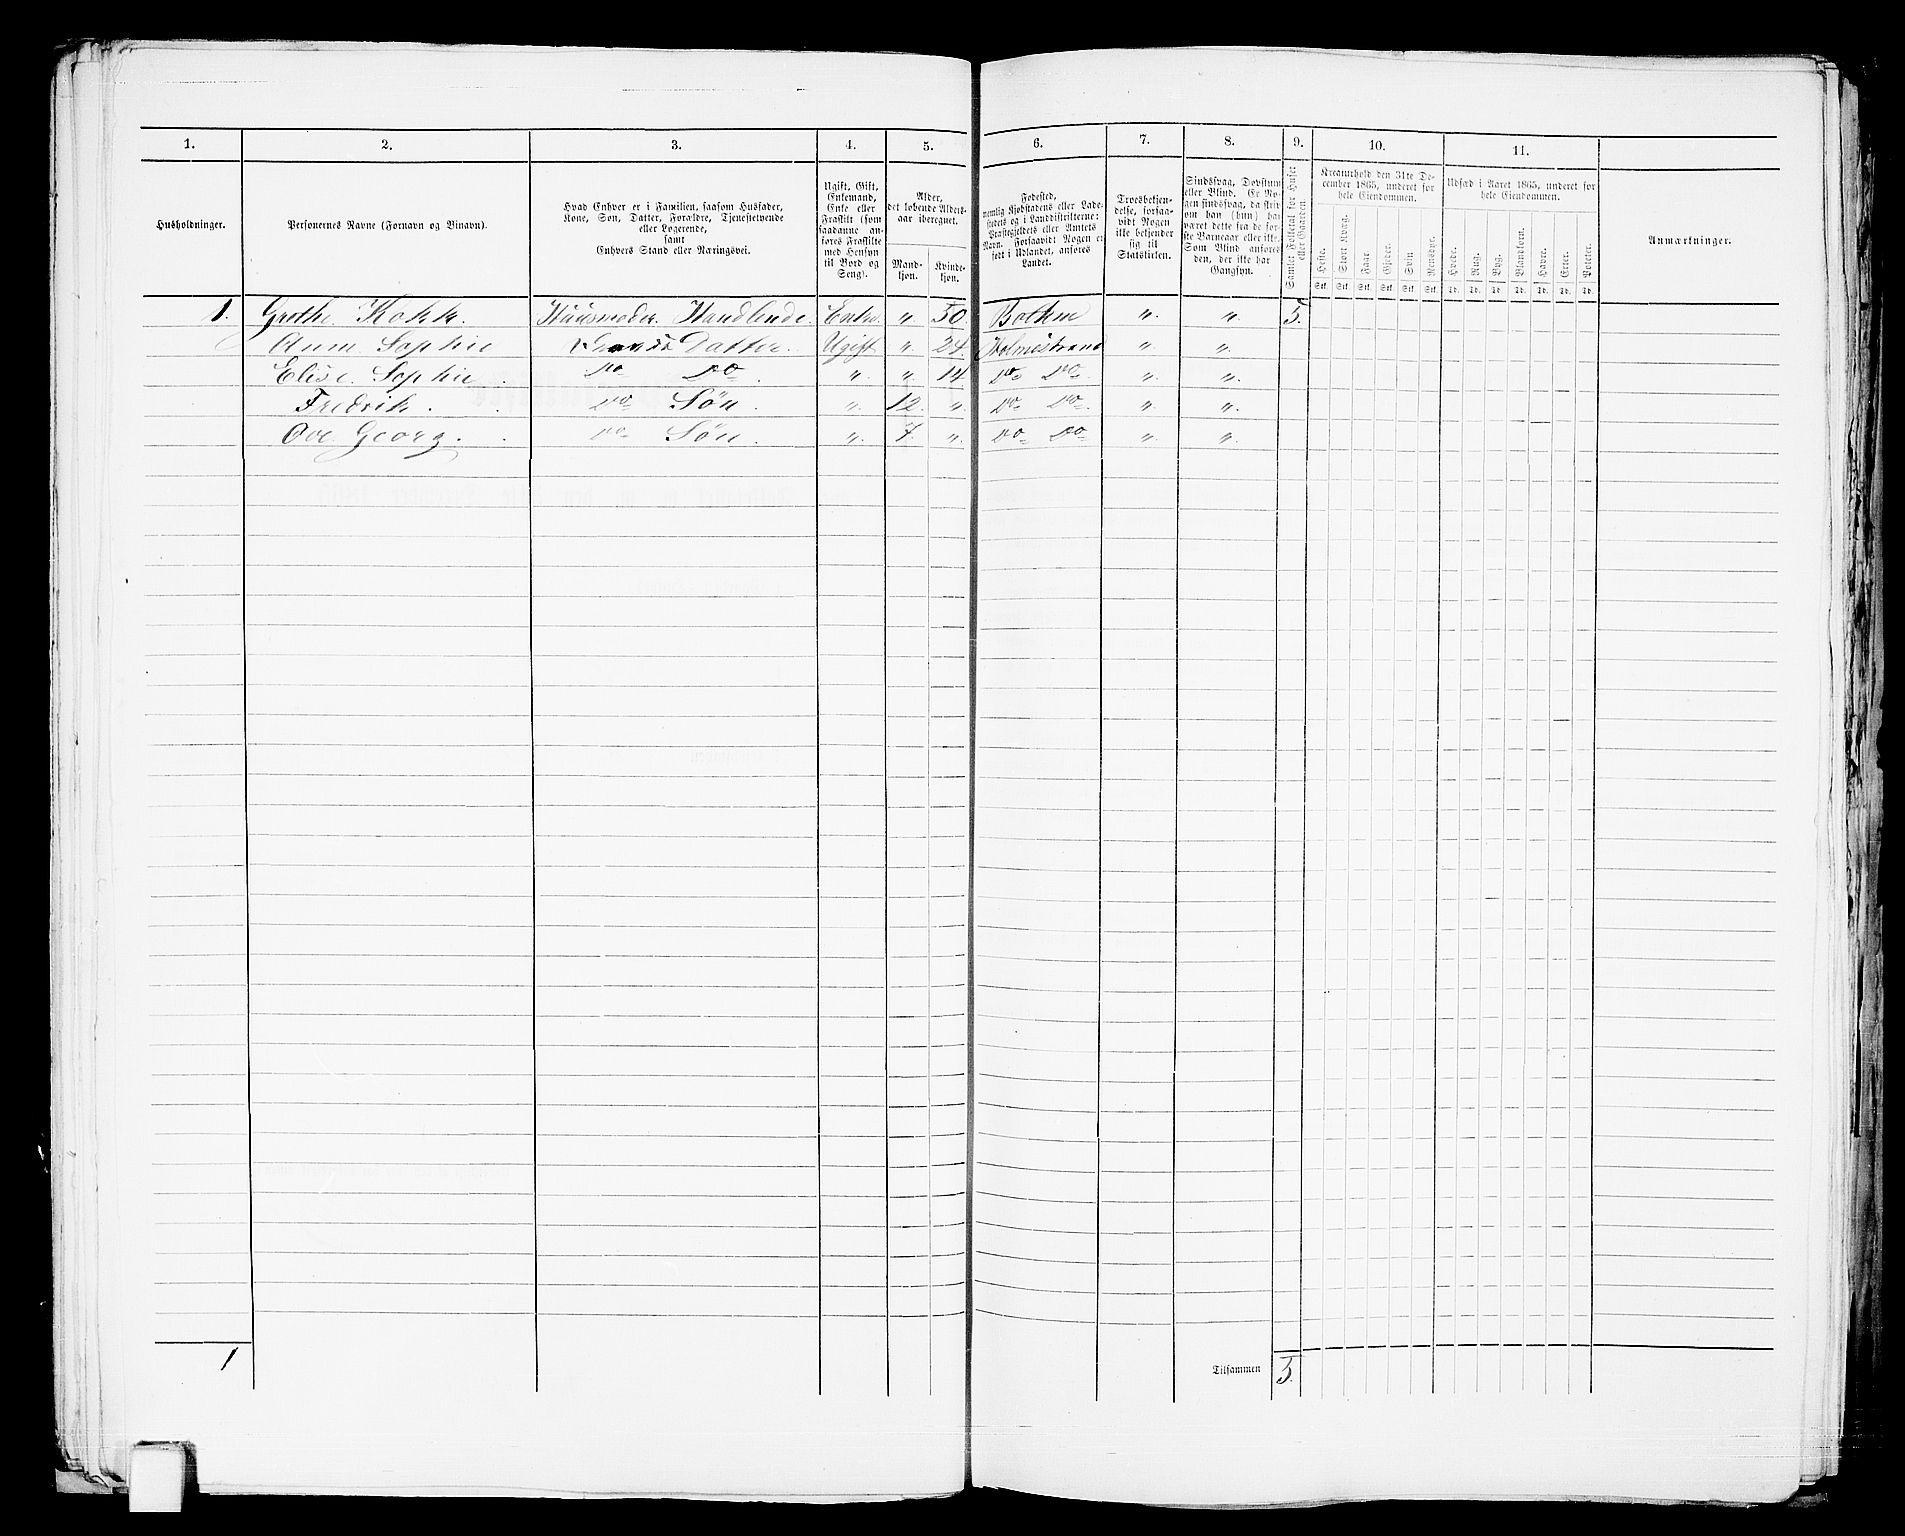 1. 2. 3. 4. 5. 6. 7. 8. 9. 10. 11.
Husholdninger.
Personernes Navne (Fornavn og Binavn).
Hvad Enhver er i Familien, saasom Husfader,
Kone, Søn, Datter, Forældre, Tjenestetyende
eller Logerende,
samt
Enhvers Stand eller Næringsvei.
Ugift, Gift,
Enkemand,
Enke eller
Fraskilt (som
saadanne an-
føres Fraskilte
med Hensyn
til Bord og
Seng).
Alder,
det løbende Alders-
aar iberegnet.
Mand-
kjøn.
Kvinde-
kjøn.
Fødested,
nemlig Kjøbstadens eller Lade-
stedets og i Landdistrikterne:
Præstegjeldets eller Amtets
Navn. Forsaavidt Nogen er
født i Udlandet, anføres
Landet.
Troesbekjen-
delse, forsaa-
vidt Nogen
ikke bekjender
sig til
Statskirken.
Sindssvag, Døvstum
eller Blind. Er No-
gen sindssvag, da skriv
om han (hun) har
været dette fra de før-
ste Barneaar eller ik.
Som Blind anføres
den, der ikke har
Gangsyn.
Samlet Folketal for Huset
eller Gaarden.
Kreaturhold den 31te De-
cember 1865, underet for
hele Eiendommen.
Heste. Stort Kvæg. Faar. Gjeder. Svin Rensdyr.
Stk. Stk. Stk. Stk. Stk. Stk.
Udsæd i Aaret 1865, underet for
hele Eiendommen.
Hvede. Rug. Byg. Blandkorn. Havre. Erter. Poteter.
Td. Td. Td. Td. Td. Td. Td.
Anmærkninger.
1. Grethe Kokk. Huusmoder. Handlende. Enke. „ 50 „ „ 5.
Anne Sophie Datter. Ugift „ 24. Holmestrand „ „
Elise Sophie Do Do „ „ 14 Do Do „ „
Fredrik. Do Søn „ 12. „ Do Do „ „
Ove Georg. Do Søn. „ 7. „ Do Do „ „
1
Tilsammen 5.